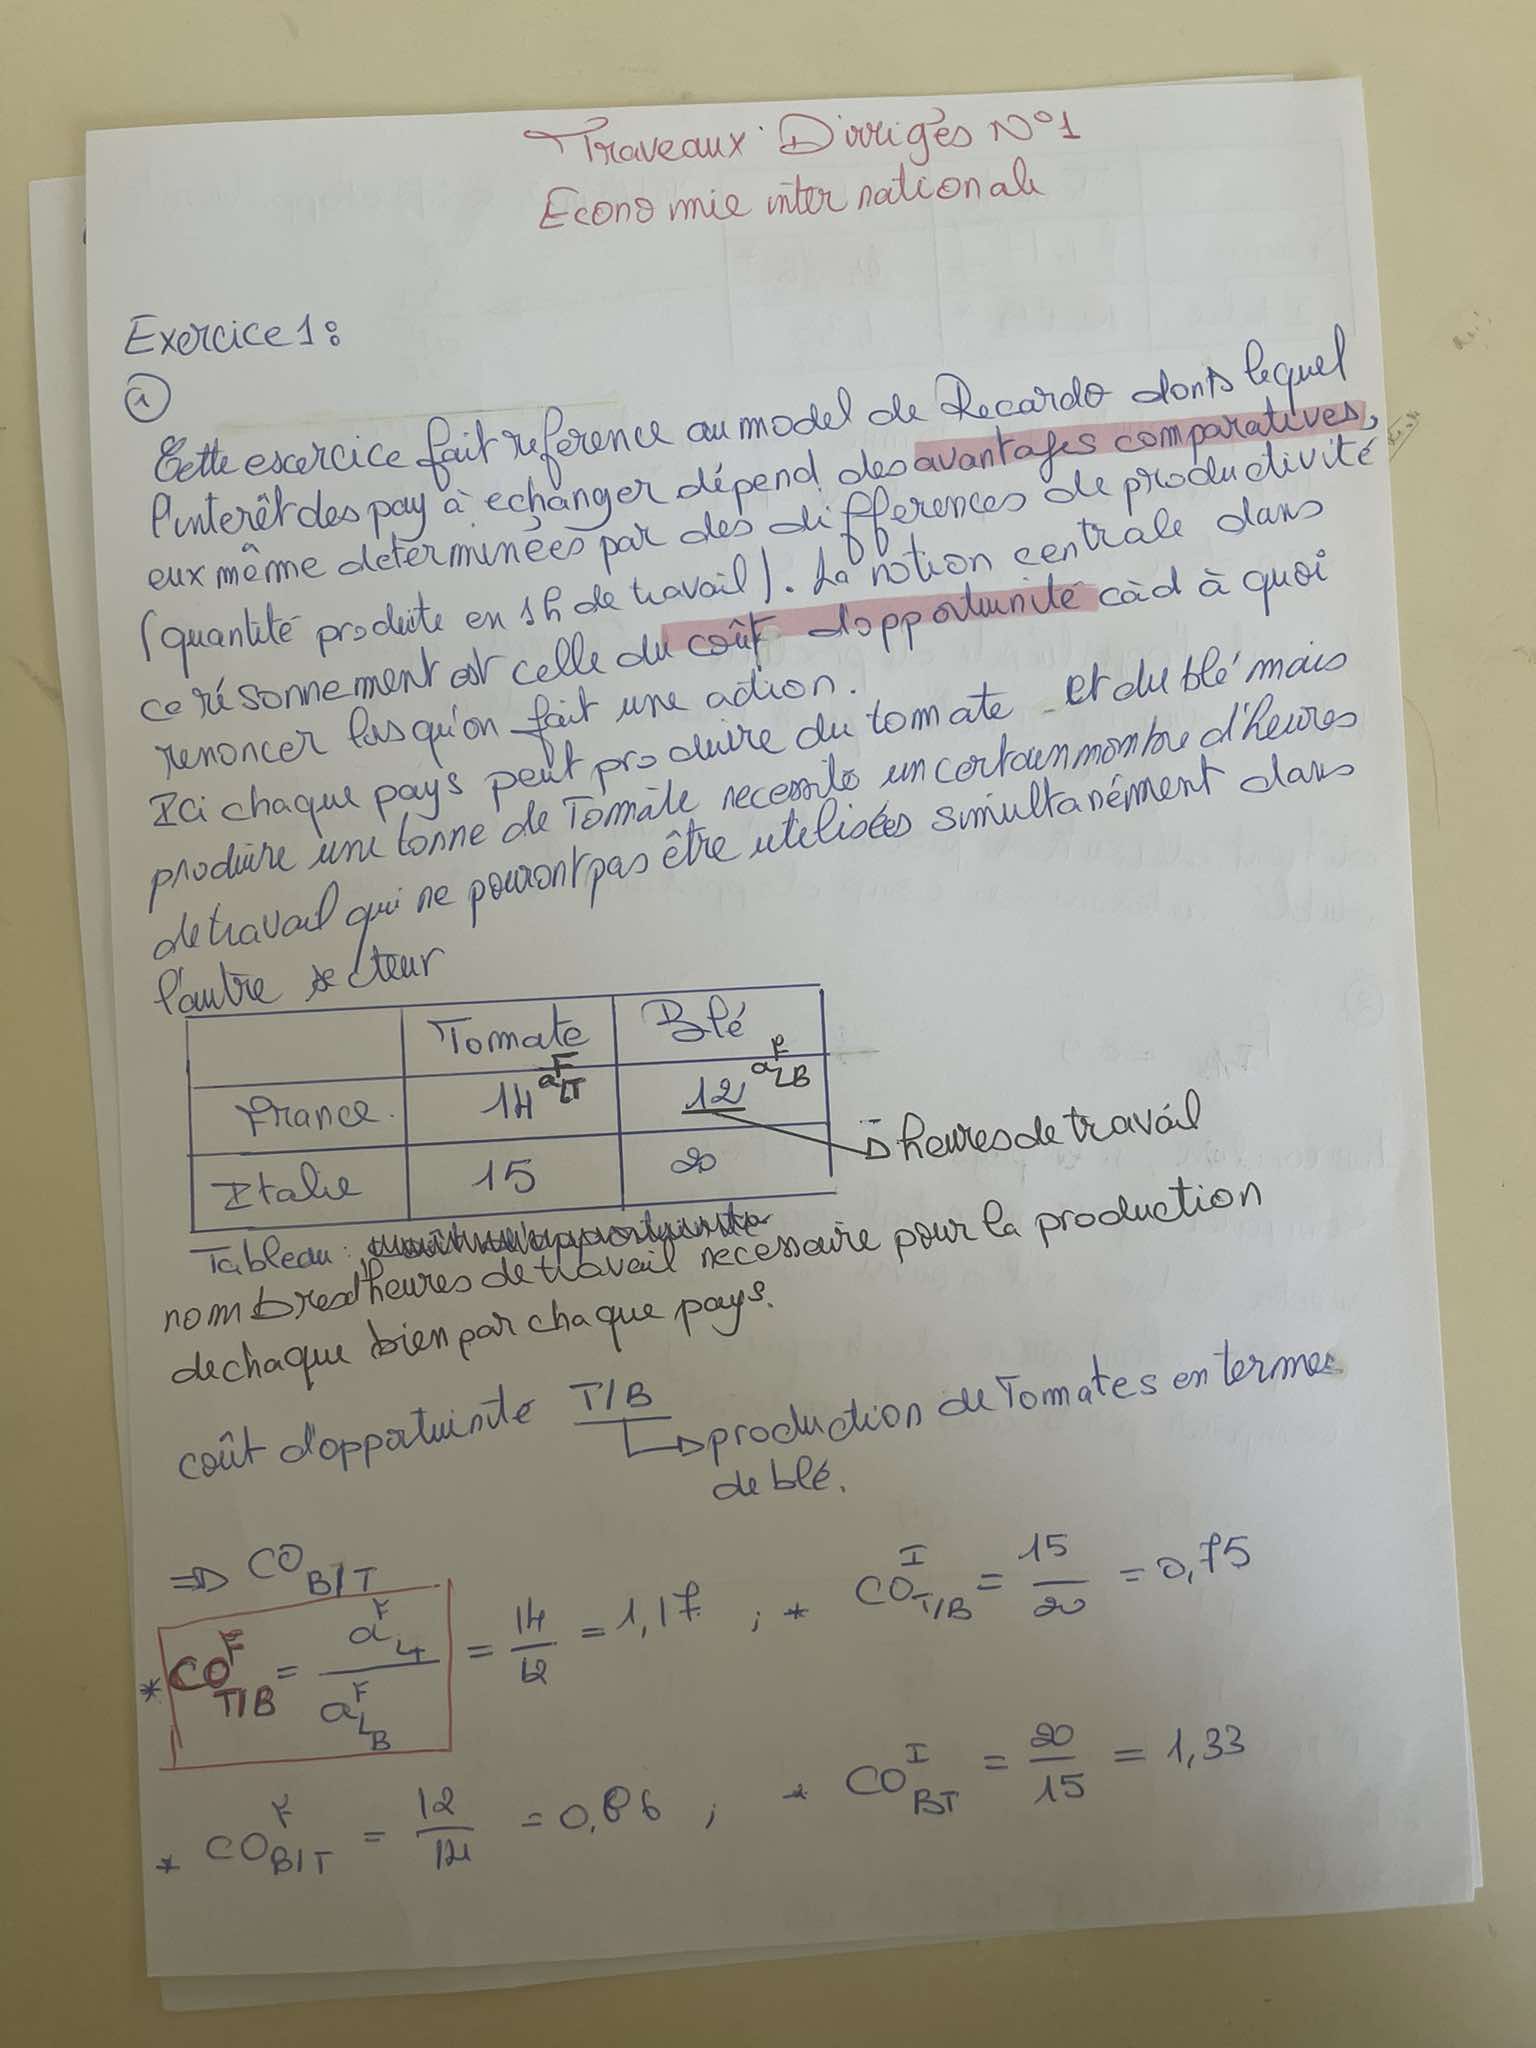 Traveaux Dirrigés N°1
Economie internationale
Exercice 1:
1
Cette exercice fait reference au model de Recardo dont lequel
l'interêt des pay à echanger dépend des avantages comparatives,
eux même determinées par des differences de productivité
(quantité produite en 1h de travail). La notion centrale dans
ce résonnement est celle du coût d'opportuinité càd à quoi
renoncer lorsqu'on fait une action.
Ici chaque pays peut produire du tomate et du blé mais
produire une tonne de Tomate necessite un certain nombre d'heures
de travail qui ne pouront pas être utilisées simultanément dans
l'autre secteur
Tomate Blé
France 14 a^F_LT 12 a^F_LB
→ heures de travail
Italie 15 20
Tableau :
nombres d'heures de travail necessaire pour la production
de chaque bien par chaque pays.
coût d'opportuinité T/B → production de Tomates en termes
de blé.
⇒ CO_B/T
* CO^F_T/B = a^F_LT / a^F_LB = 14/12 = 1,17 ; * CO^I_T/B = 15/20 = 0,75
* CO^F_B/T = 12/14 = 0,86 ; * CO^I_BT = 20/15 = 1,33